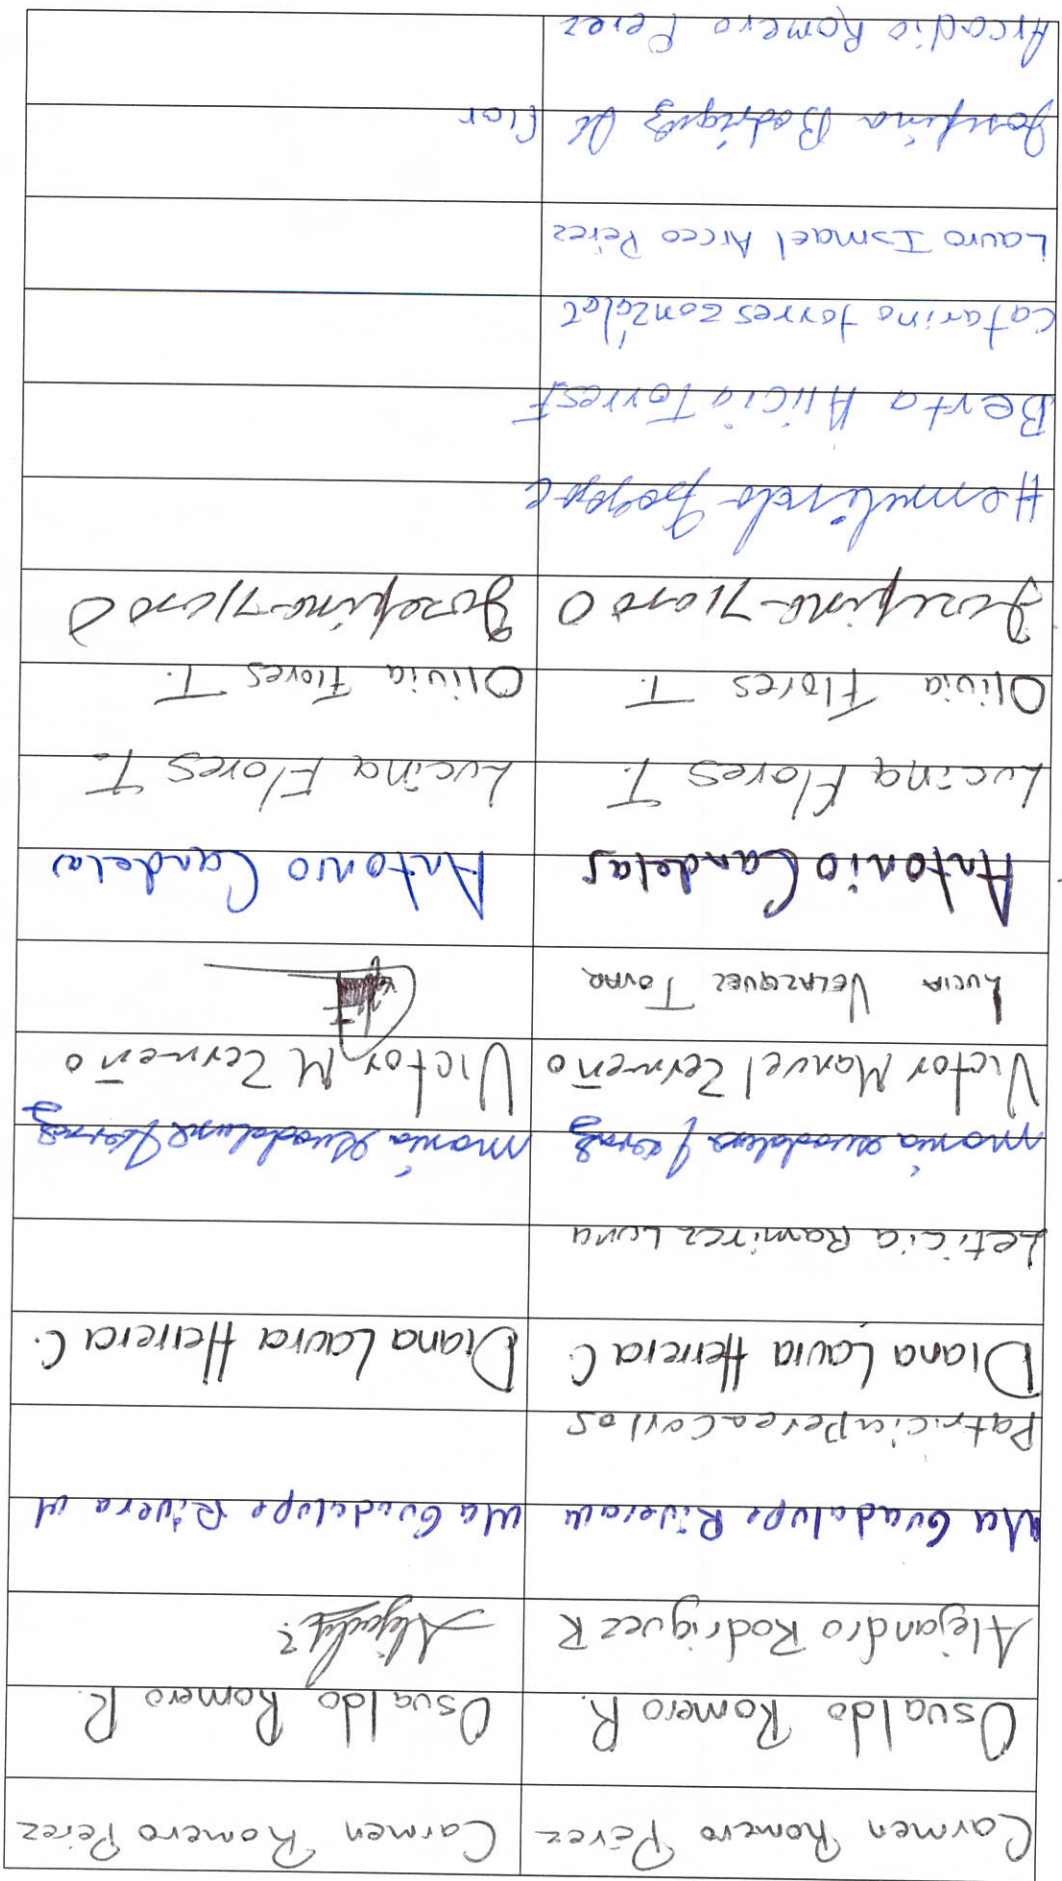 Carmen Romero Pérez Carmen Romero Pérez
Osvaldo Romero R. Osvaldo Romero R.
Alejandro Rodriguez R
Ma Guadalupe Rivera M Ma Guadalupe Rivera M
Patricia Perea Carlos
Diana Laura Herrera C Diana Laura Herrera C.
Leticia Ramirez Luna
maria maria
Victor Manuel Zermeño Victor M Zermeño
Lucia Velazquez Tovar
Antonio Candelas Antonio Candelas
Lucina Flores T. Lucina Flores T.
Olivia Flores T. Olivia Flores T.
Berta Alicia Torres F
Catarino torres
Lauro Ismael Arceo Pérez
Josefina flor
Arcadio Romero Perez